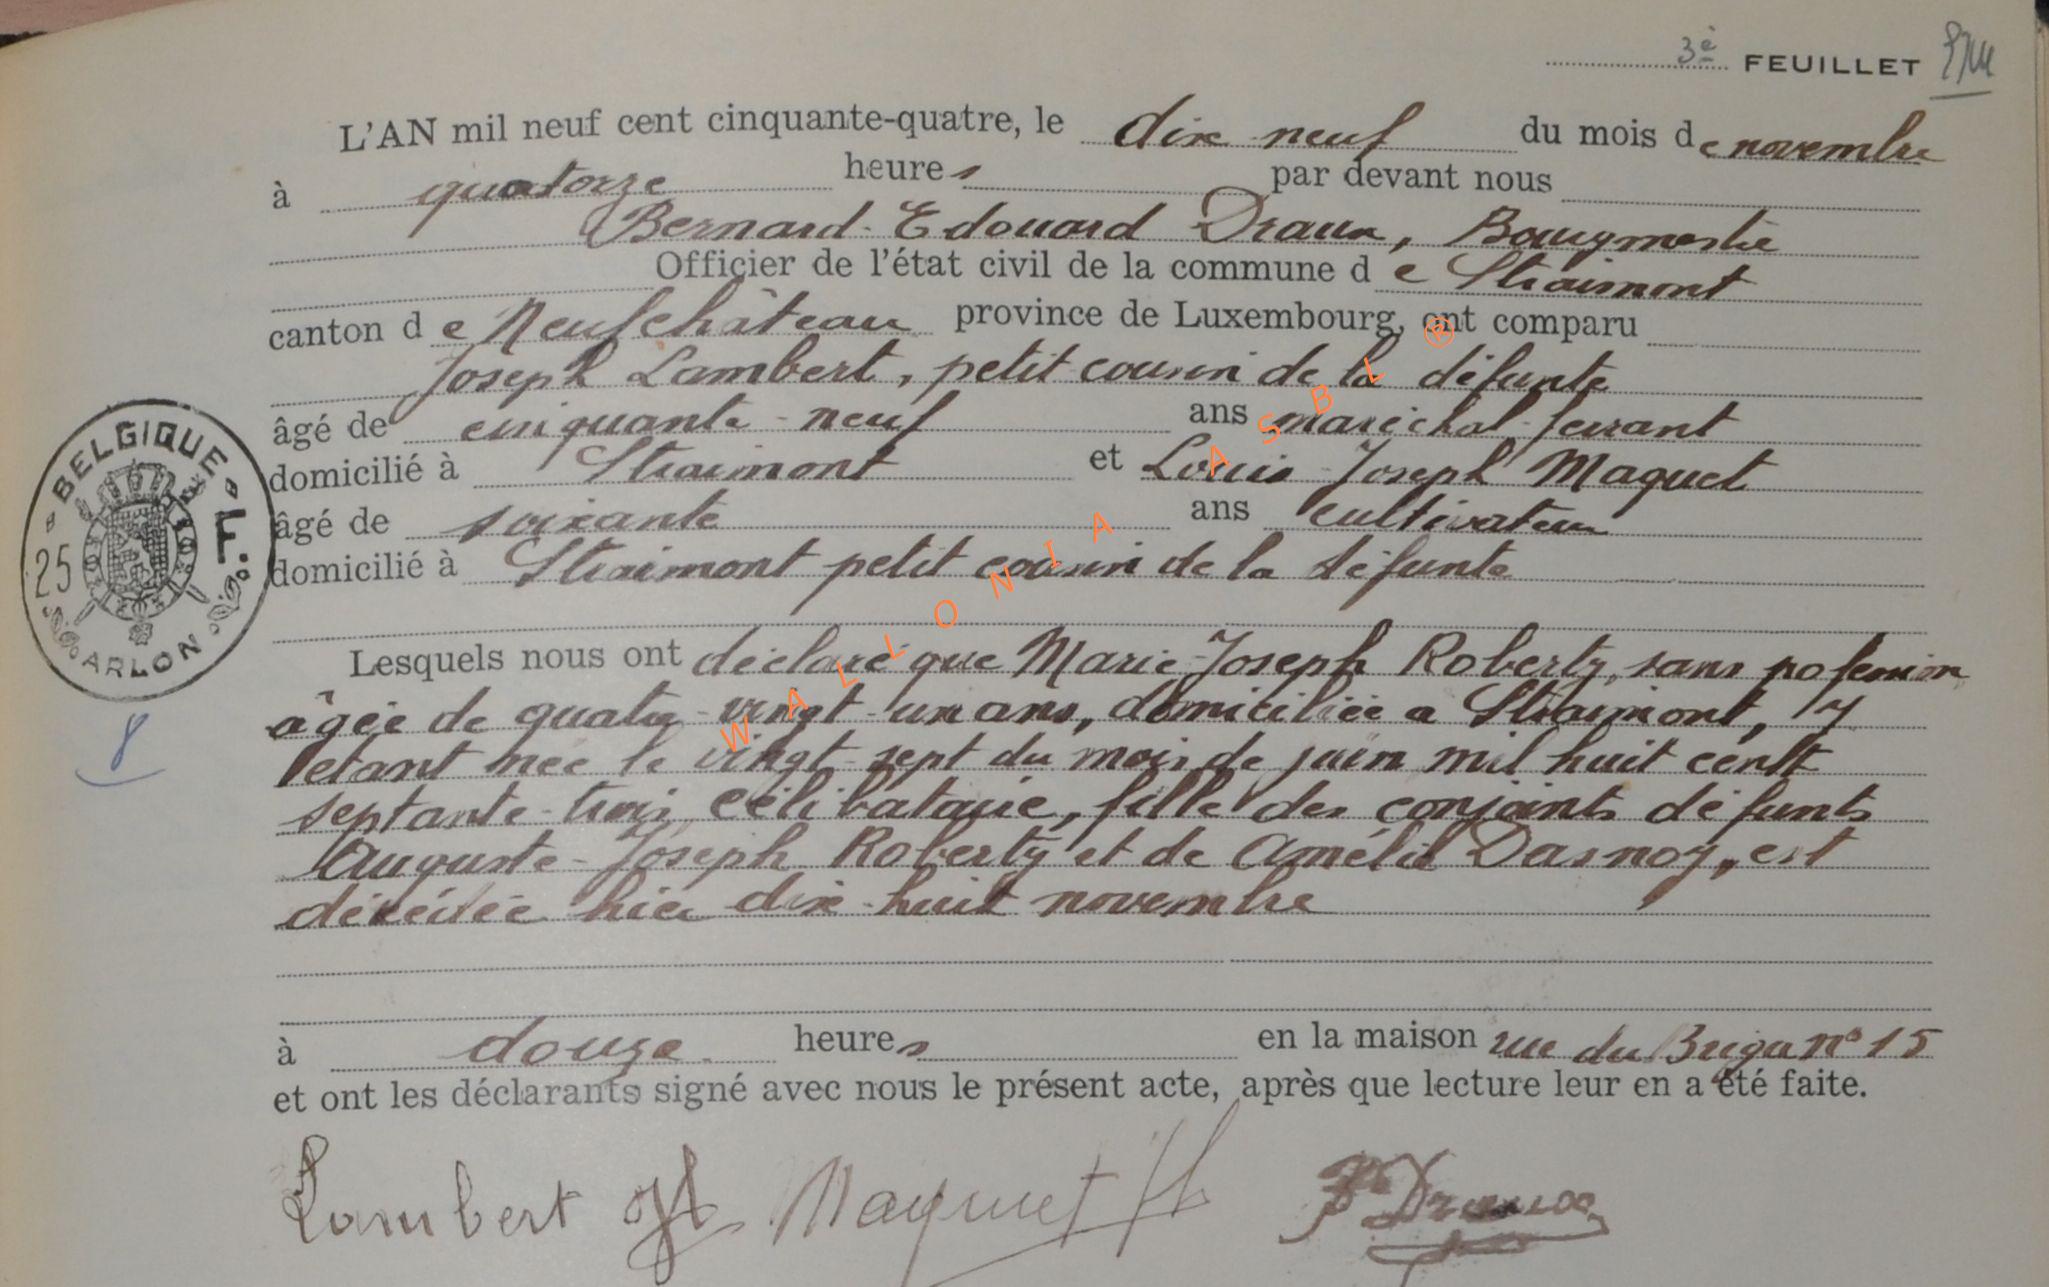 3è FEUILLET
L'AN mil neuf cent cinquante-quatre, le dix neuf du mois de novembre
à quatorze heures par devant nous
Bernard-Edouard Draux, Bourgmestre
Officier de l'état civil de la commune de Straimont
canton de Neufchâteau province de Luxembourg, ont comparu
Joseph Lambert, petit cousin de la défunte
âgé de cinquante-neuf ans maréchal-ferrant
domicilié à Straimont et Louis-Joseph Maquet
âgé de soixante ans cultivateur
domicilié à Straimont petit cousin de la défunte
Lesquels nous ont déclaré que Marie-Joseph Roberty, sans profession
âgée de quatre-vingt-un ans, domiciliée à Straimont, y
étant née le vingt-sept du mois de juin mil huit cent
septante-trois, célibataire, fille des conjoints défunts
Auguste-Joseph Roberty et de Amélie Dasnoy, est
décédée hier dix-huit novembre
à douze heures en la maison rue du n° 15
et ont les déclarants signé avec nous le présent acte, après que lecture leur en a été faite.
Lambert Jh Maquet Draux
BELGIQUE
25 F.
ARLON
8
WALLONIA ASBL ®